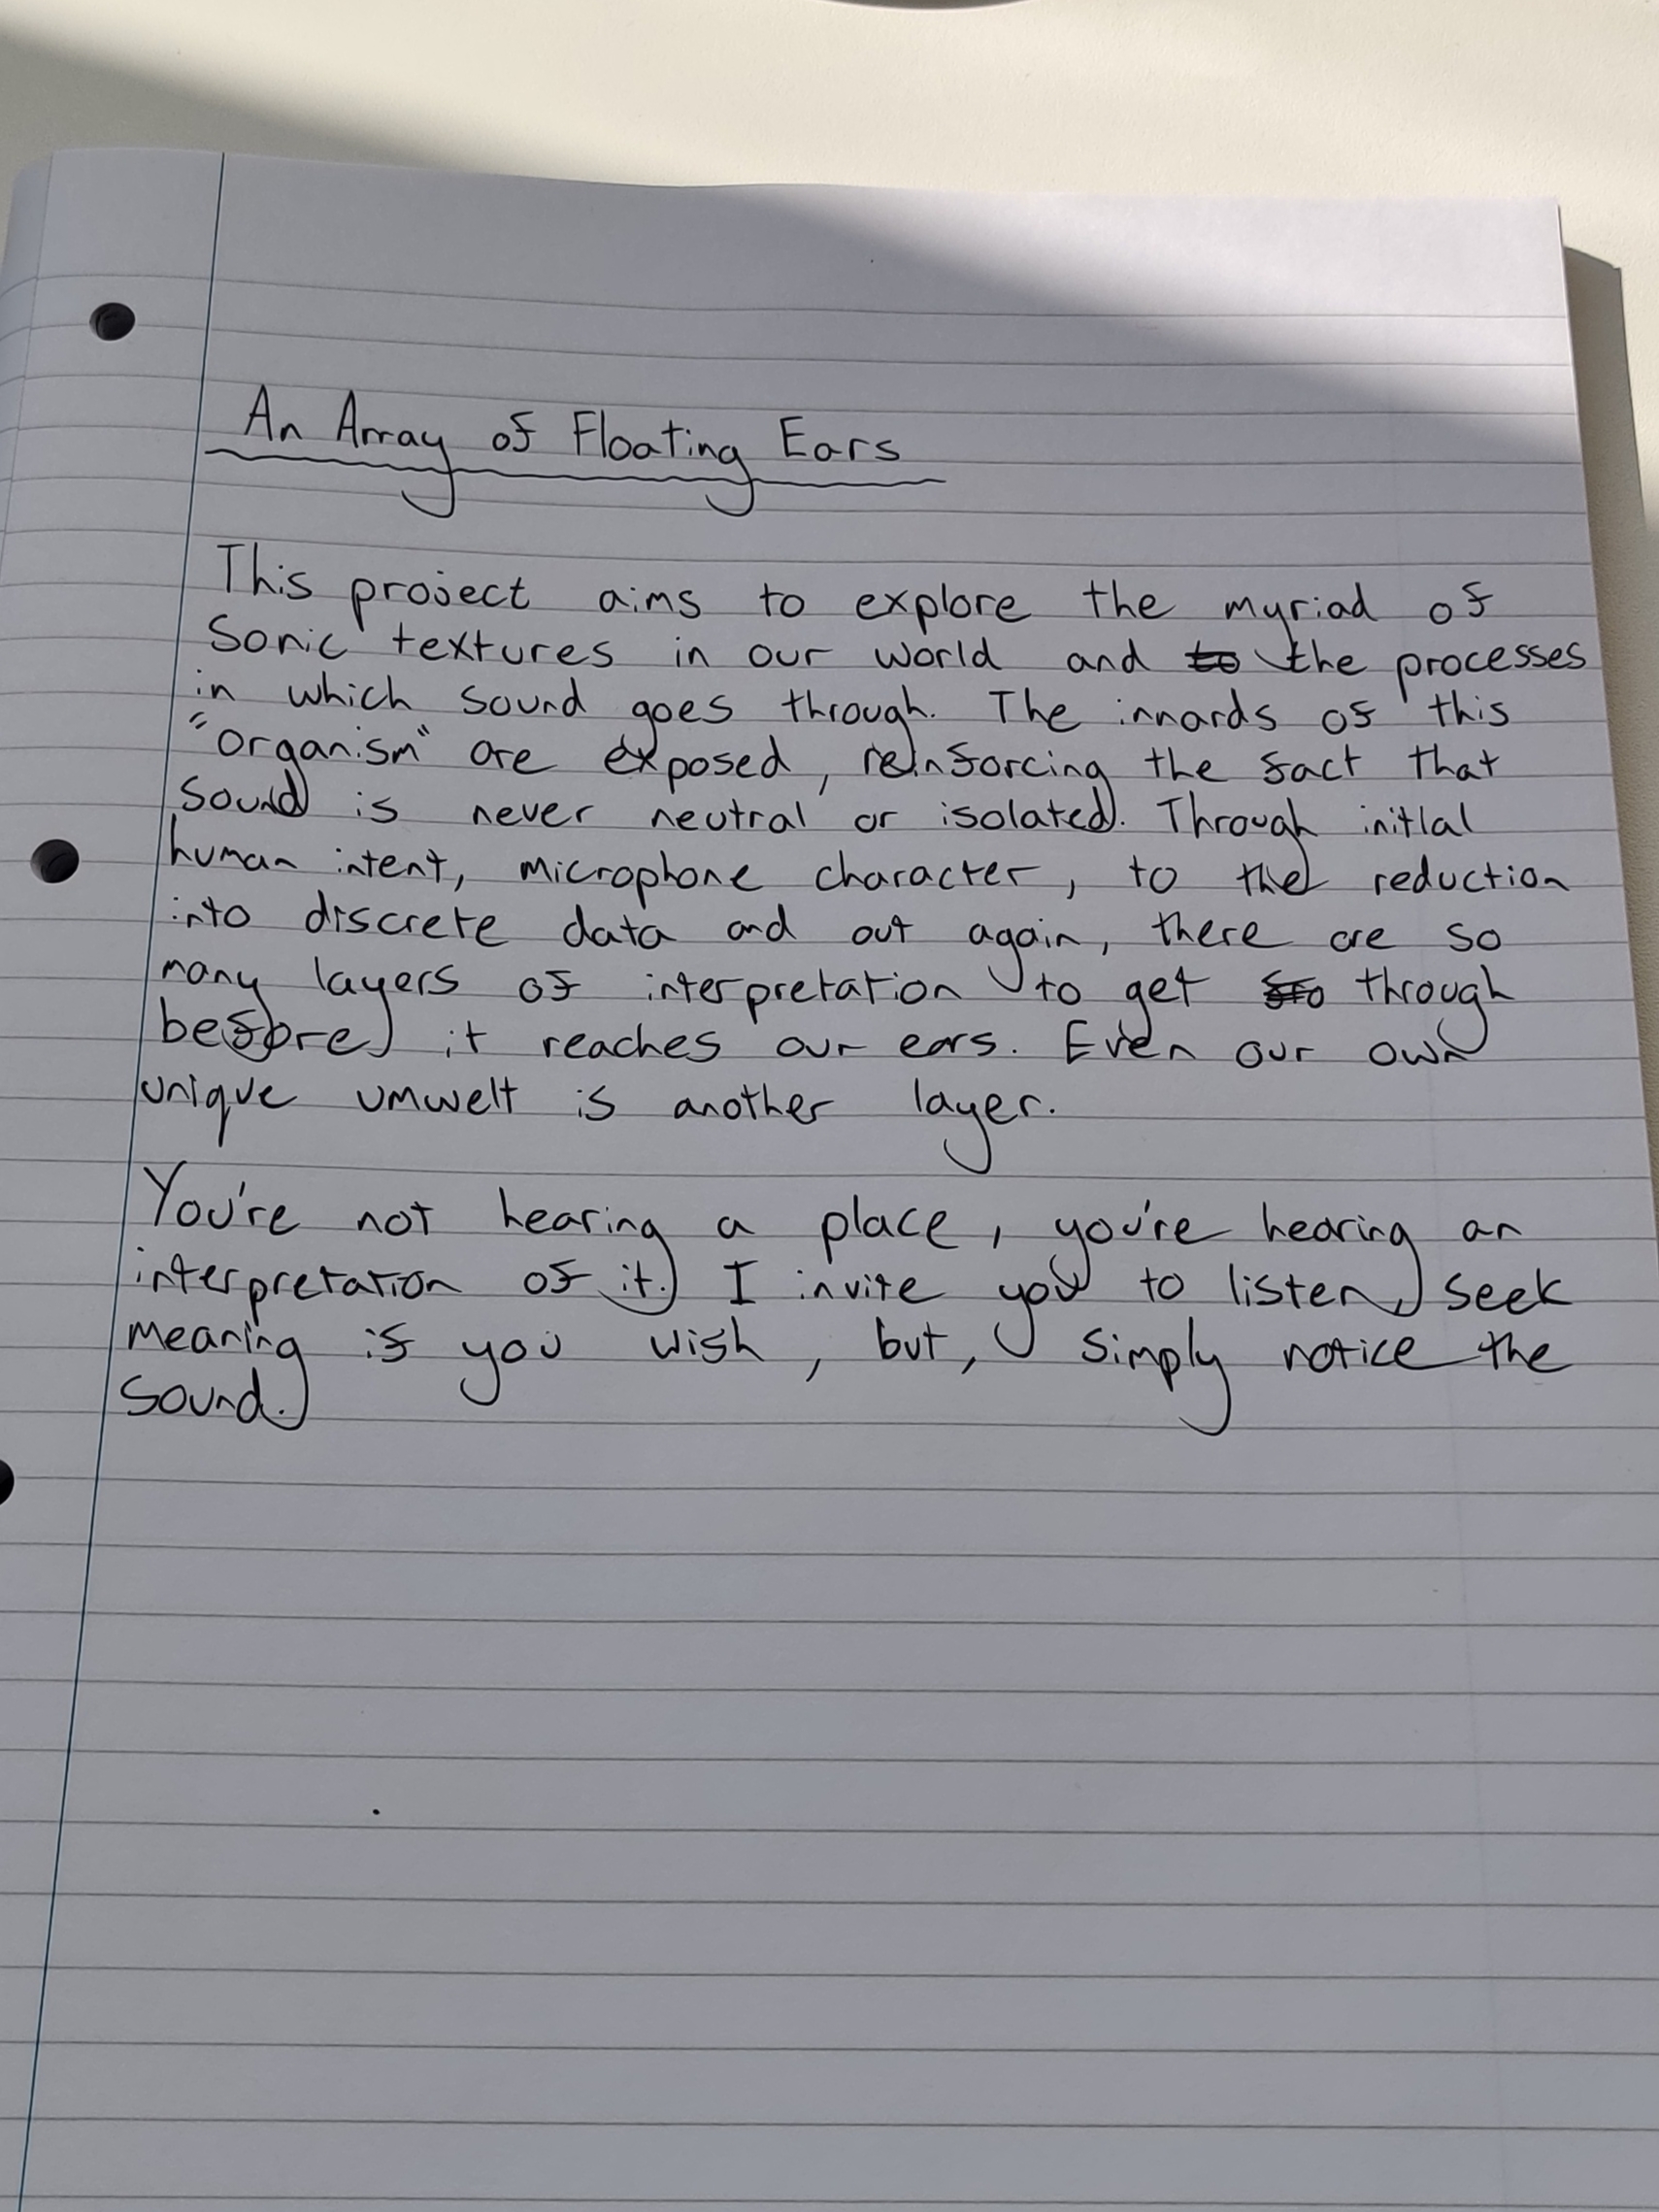 An Array of Floating Ears
This project aims to explore the myriad of
Sonic textures in our world and ~~to~~ the processes
in which sound goes through. The innards of this
"organism" are exposed, reinforcing the fact that
sound is never neutral or isolated. Through initial
human intent, microphone character, to the reduction
into discrete data and out again, there are so
many layers of interpretation to get through
before it reaches our ears. Even our own
unique umwelt is another layer.
You're not hearing a place, you're hearing an
interpretation of it. I invite you to listen, seek
meaning if you wish, but, simply notice the
sound.